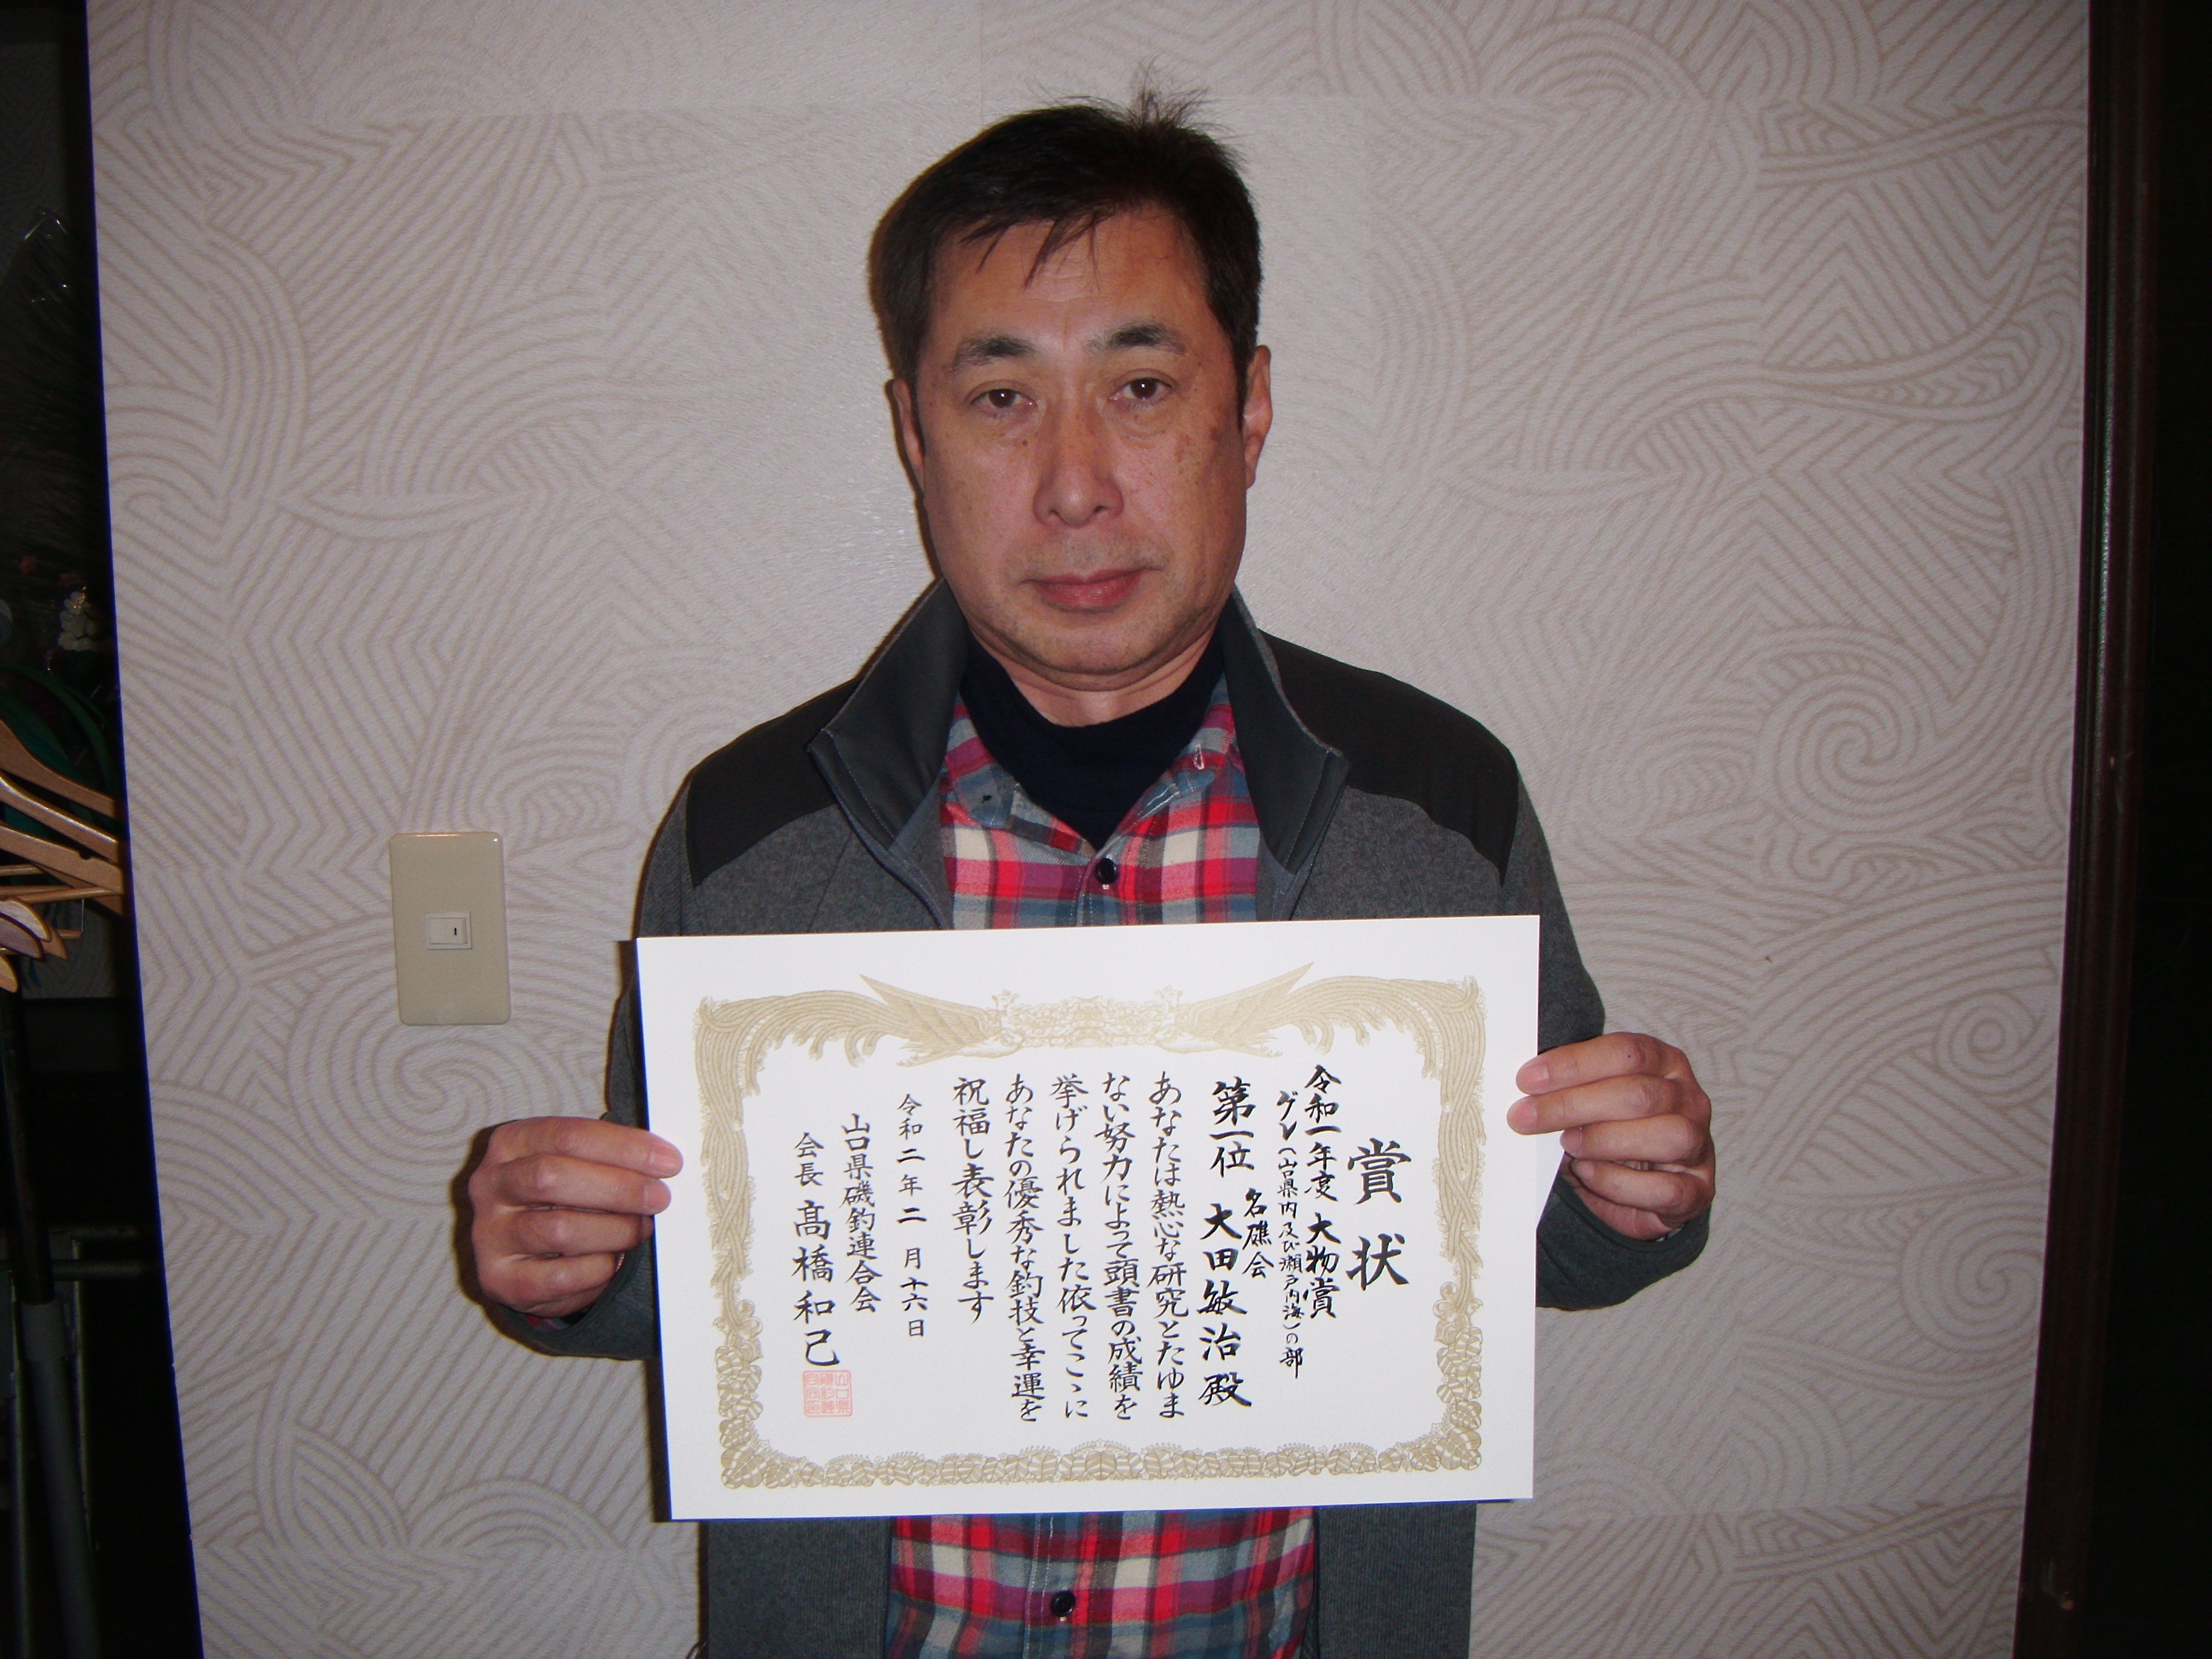 賞状
令和一年度 大物賞
グレ(山口県内及び瀬戸内海)の部
名礁会
第一位 大田敏治殿
あなたは熱心な研究とたゆま
ない努力によって頭書の成績を
挙げられました依ってここに
あなたの優秀な釣技と幸運を
祝福し表彰します
令和二年二月十六日
山口県磯釣連合会
会長 髙橋和己